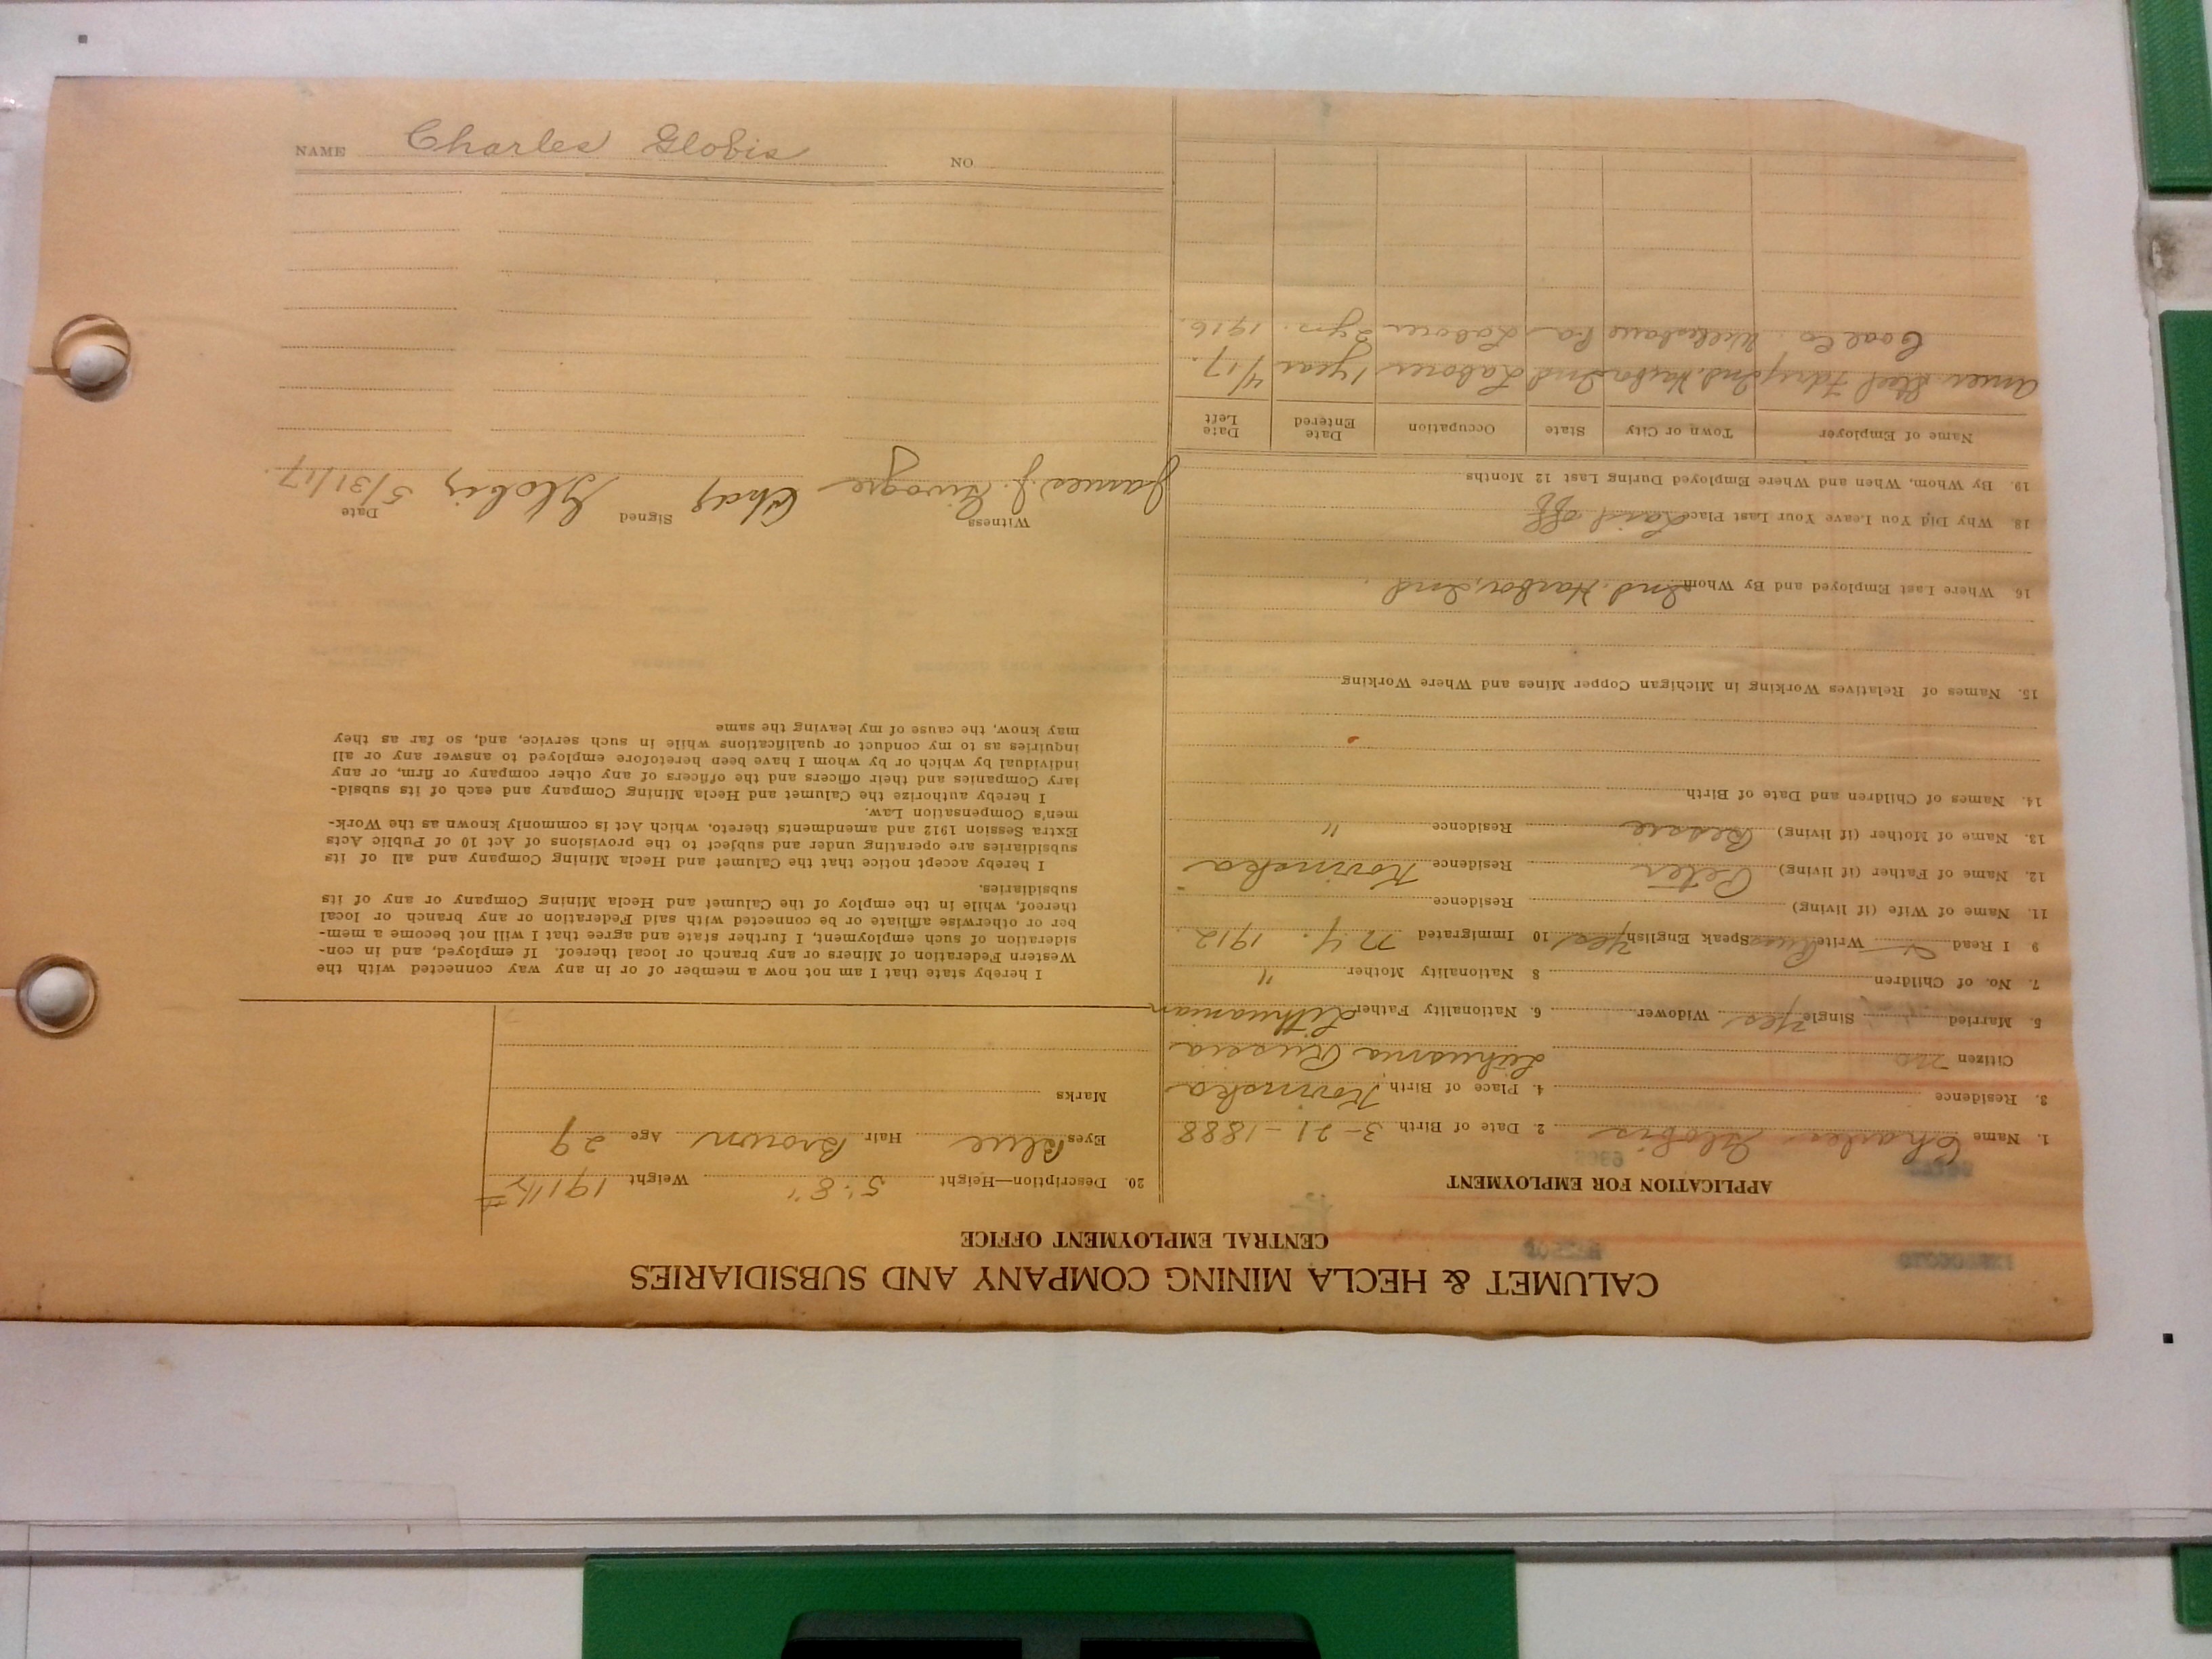 CALUMET & HECLA MINING COMPANY AND SUBSIDIARIES
CENTRAL EMPLOYMENT OFFICE
APPLICATION FOR EMPLOYMENT
1. Name Charles Globis 2. Date of Birth 3-21-1888
3. Residence 4. Place of Birth Kovinska
Citizen no Lithuania Russia
5. Married Single Yes Widower 6. Nationality Father Lithuanian
7. No. of Children 8 Nationality Mother "
9 I Read Write Russ Speak English Yes 10 Immigrated N.Y. 1912
11. Name of Wife (if living) Residence
12. Name of Father (if living) Peter Residence Kovinska
13. Name of Mother (if living) Bessie Residence "
14. Names of Children and Date of Birth
15. Names of Relatives Working in Michigan Copper Mines and Where Working
16 Where Last Employed and By Whom Ind. Harbor, Ind
18. Why Did You Leave Your Last Place Laid off
19. By Whom, When and Where Employed During Last 12 Months
Name of Employer Town or City State Occupation Date Entered Date Left
Amer. Steel Fdry Ind. Harbor Ind Laborer 1 year 4/17.
Coal Co. Pa Laborer 2 yrs. 1916.
20. Description—Height 5' 8" Weight 191 1/2 #
Eyes Blue Hair Brown Age 29
Marks
I hereby state that I am not now a member of or in any way connected with the
Western Federation of Miners or any branch or local thereof. If employed, and in con-
sideration of such employment, I further state and agree that I will not become a mem-
ber or otherwise affiliate or be connected with said Federation or any branch or local
thereof, while in the employ of the Calumet and Hecla Mining Company or any of its
subsidiaries.
I hereby accept notice that the Calumet and Hecla Mining Company and all of its
subsidiaries are operating under and subject to the provisions of Act 10 of Public Acts
Extra Session 1912 and amendments thereto, which Act is commonly known as the Work-
men's Compensation Law.
I hereby authorize the Calumet and Hecla Mining Company and each of its subsid-
iary Companies and their officers and the officers of any other company or firm, or any
individual by which or by whom I have been heretofore employed to answer any or all
inquiries as to my conduct or qualifications while in such service, and, so far as they
may know, the cause of my leaving the same
Witness Signed Date
James J. Chas Globis 5/31/17.
NAME Charles Globis NO.